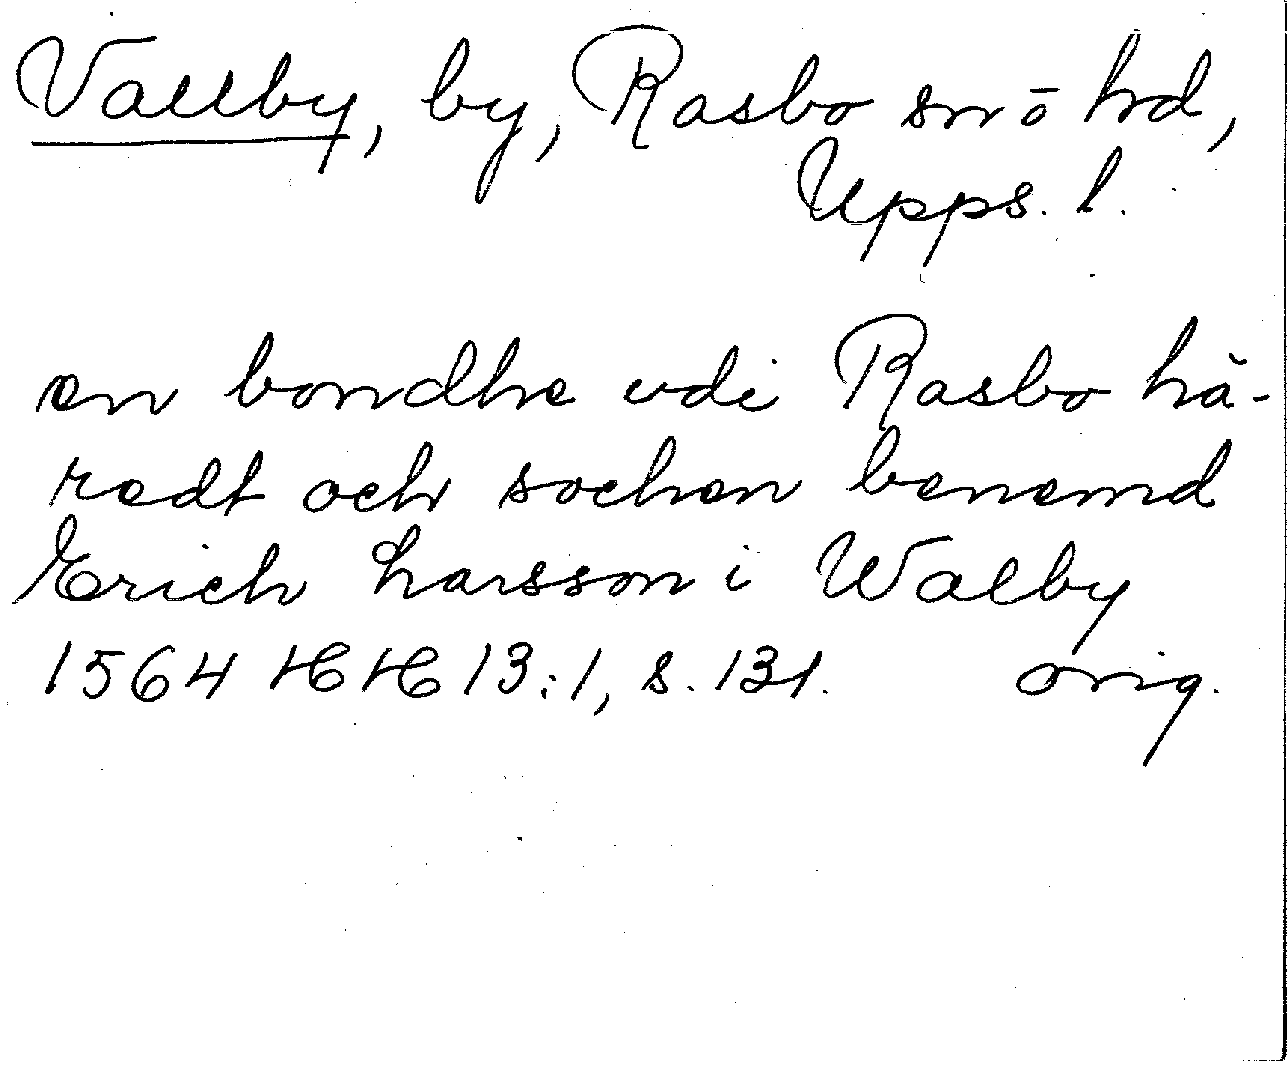 Vallby, by, Rasbo sn o hd,
Upps. l.
en bondhe vdi Rasbo hä-
redt och sochen benemd
Erich Larsson i Walby
1564 HH 13:1, s. 131. orig.